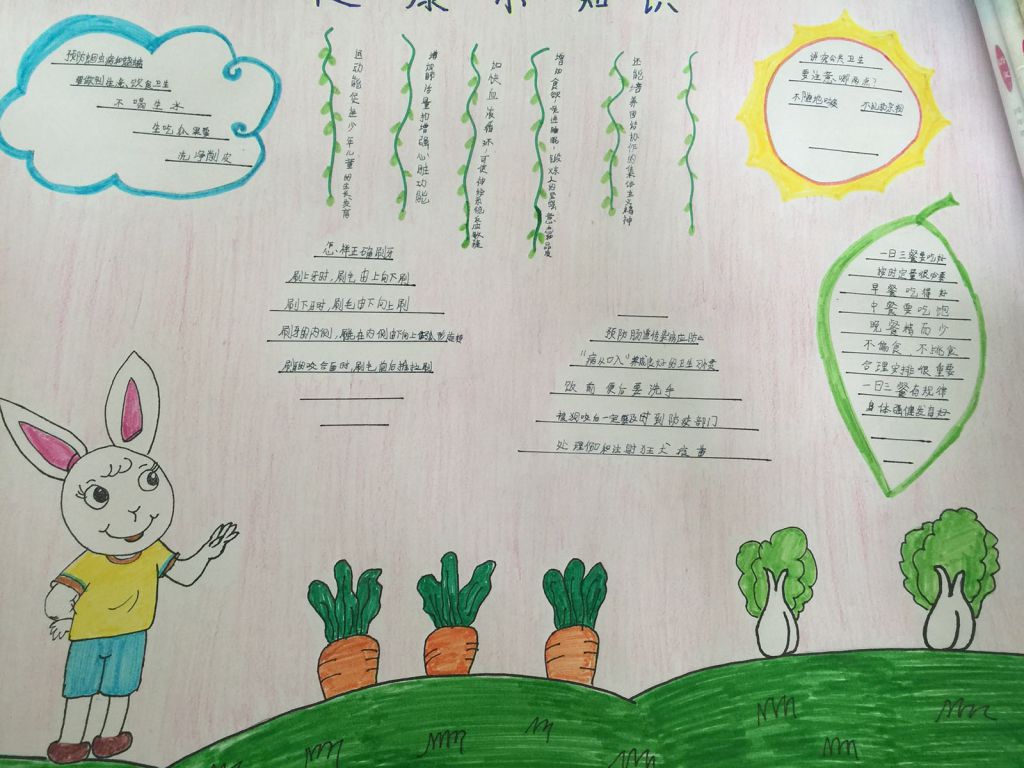 康小知识
预防蛔虫病和蛲虫
要做到注意饮食卫生
不喝生水
生吃瓜果要
洗净削皮
运动能促进少年儿童的生长发育
增加肺活量的增强心脏功能
加快血液循环,可使神经系统反应敏捷
增加食欲,促进睡眠,锻炼人的坚强意志品质
还能培养团结协作的集体主义精神
讲究公共卫生
要注意哪两点?
不随地吐痰
不乱扔杂物
怎样正确刷牙
刷上牙时,刷毛由上向下刷
刷下牙时,刷毛由下向上刷
刷牙的内侧,
刷咬合面时,刷毛前后推拉刷
预防肠道传染病应防止
"病从口入"养成良好的卫生习惯
饭前便后要洗手
被狗咬后一定要及时到防疫部门
处理伤口和注射狂犬疫苗
一日三餐要吃好
按时定量很必要
早餐吃得好
中餐要吃饱
晚餐精而少
不偏食,不挑食
合理安排很重要
一日三餐有规律
身体健康发育好